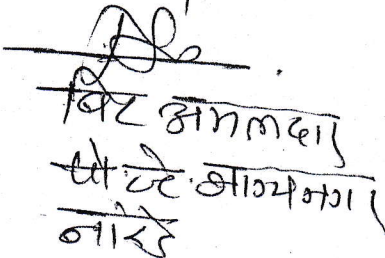 बिट अमलदार
पो.स्टे. भाग्यनगर
नांदेड